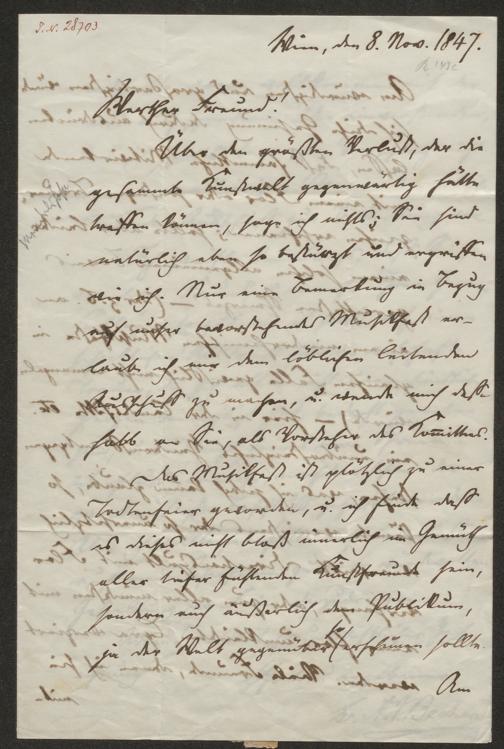 I.N. 28703
Wien, den 8. Nov. 1847.
Werther Freund!
Über den größten Verlust, der die
gesammte Kunstwelt gegenwärtig hätte
treffen können, sage ich nichts; Sie sind
natürlich eben so bestürzt und ergriffen
wie ich. Nur eine Bemerkung in Bezug
auf unser bevorstehendes Musikfest er-
laube ich mir dem löblichen leitenden
Ausschuss zu machen, u. wende mich deß-
halb an Sie, als Vorsteher des Komittees.
Das Musikfest ist plötzlich zu einer
Todtenfeier geworden, u. ich finde daß
es dieses nicht bloß innerlich im Gemüth
aller tiefer fühlenden Kunstfreunde sein,
sondern auch äußerlich dem Publikum,
ja der Welt gegenüber so erscheinen sollte.
Am